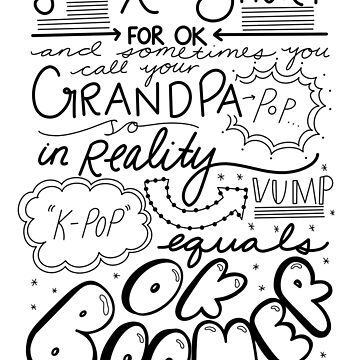 FOR OK
and sometimes you
call your
GRANDPA-PoP...
so
in Reality
VUMP
"K-POP"
equals
OK
BOOMER